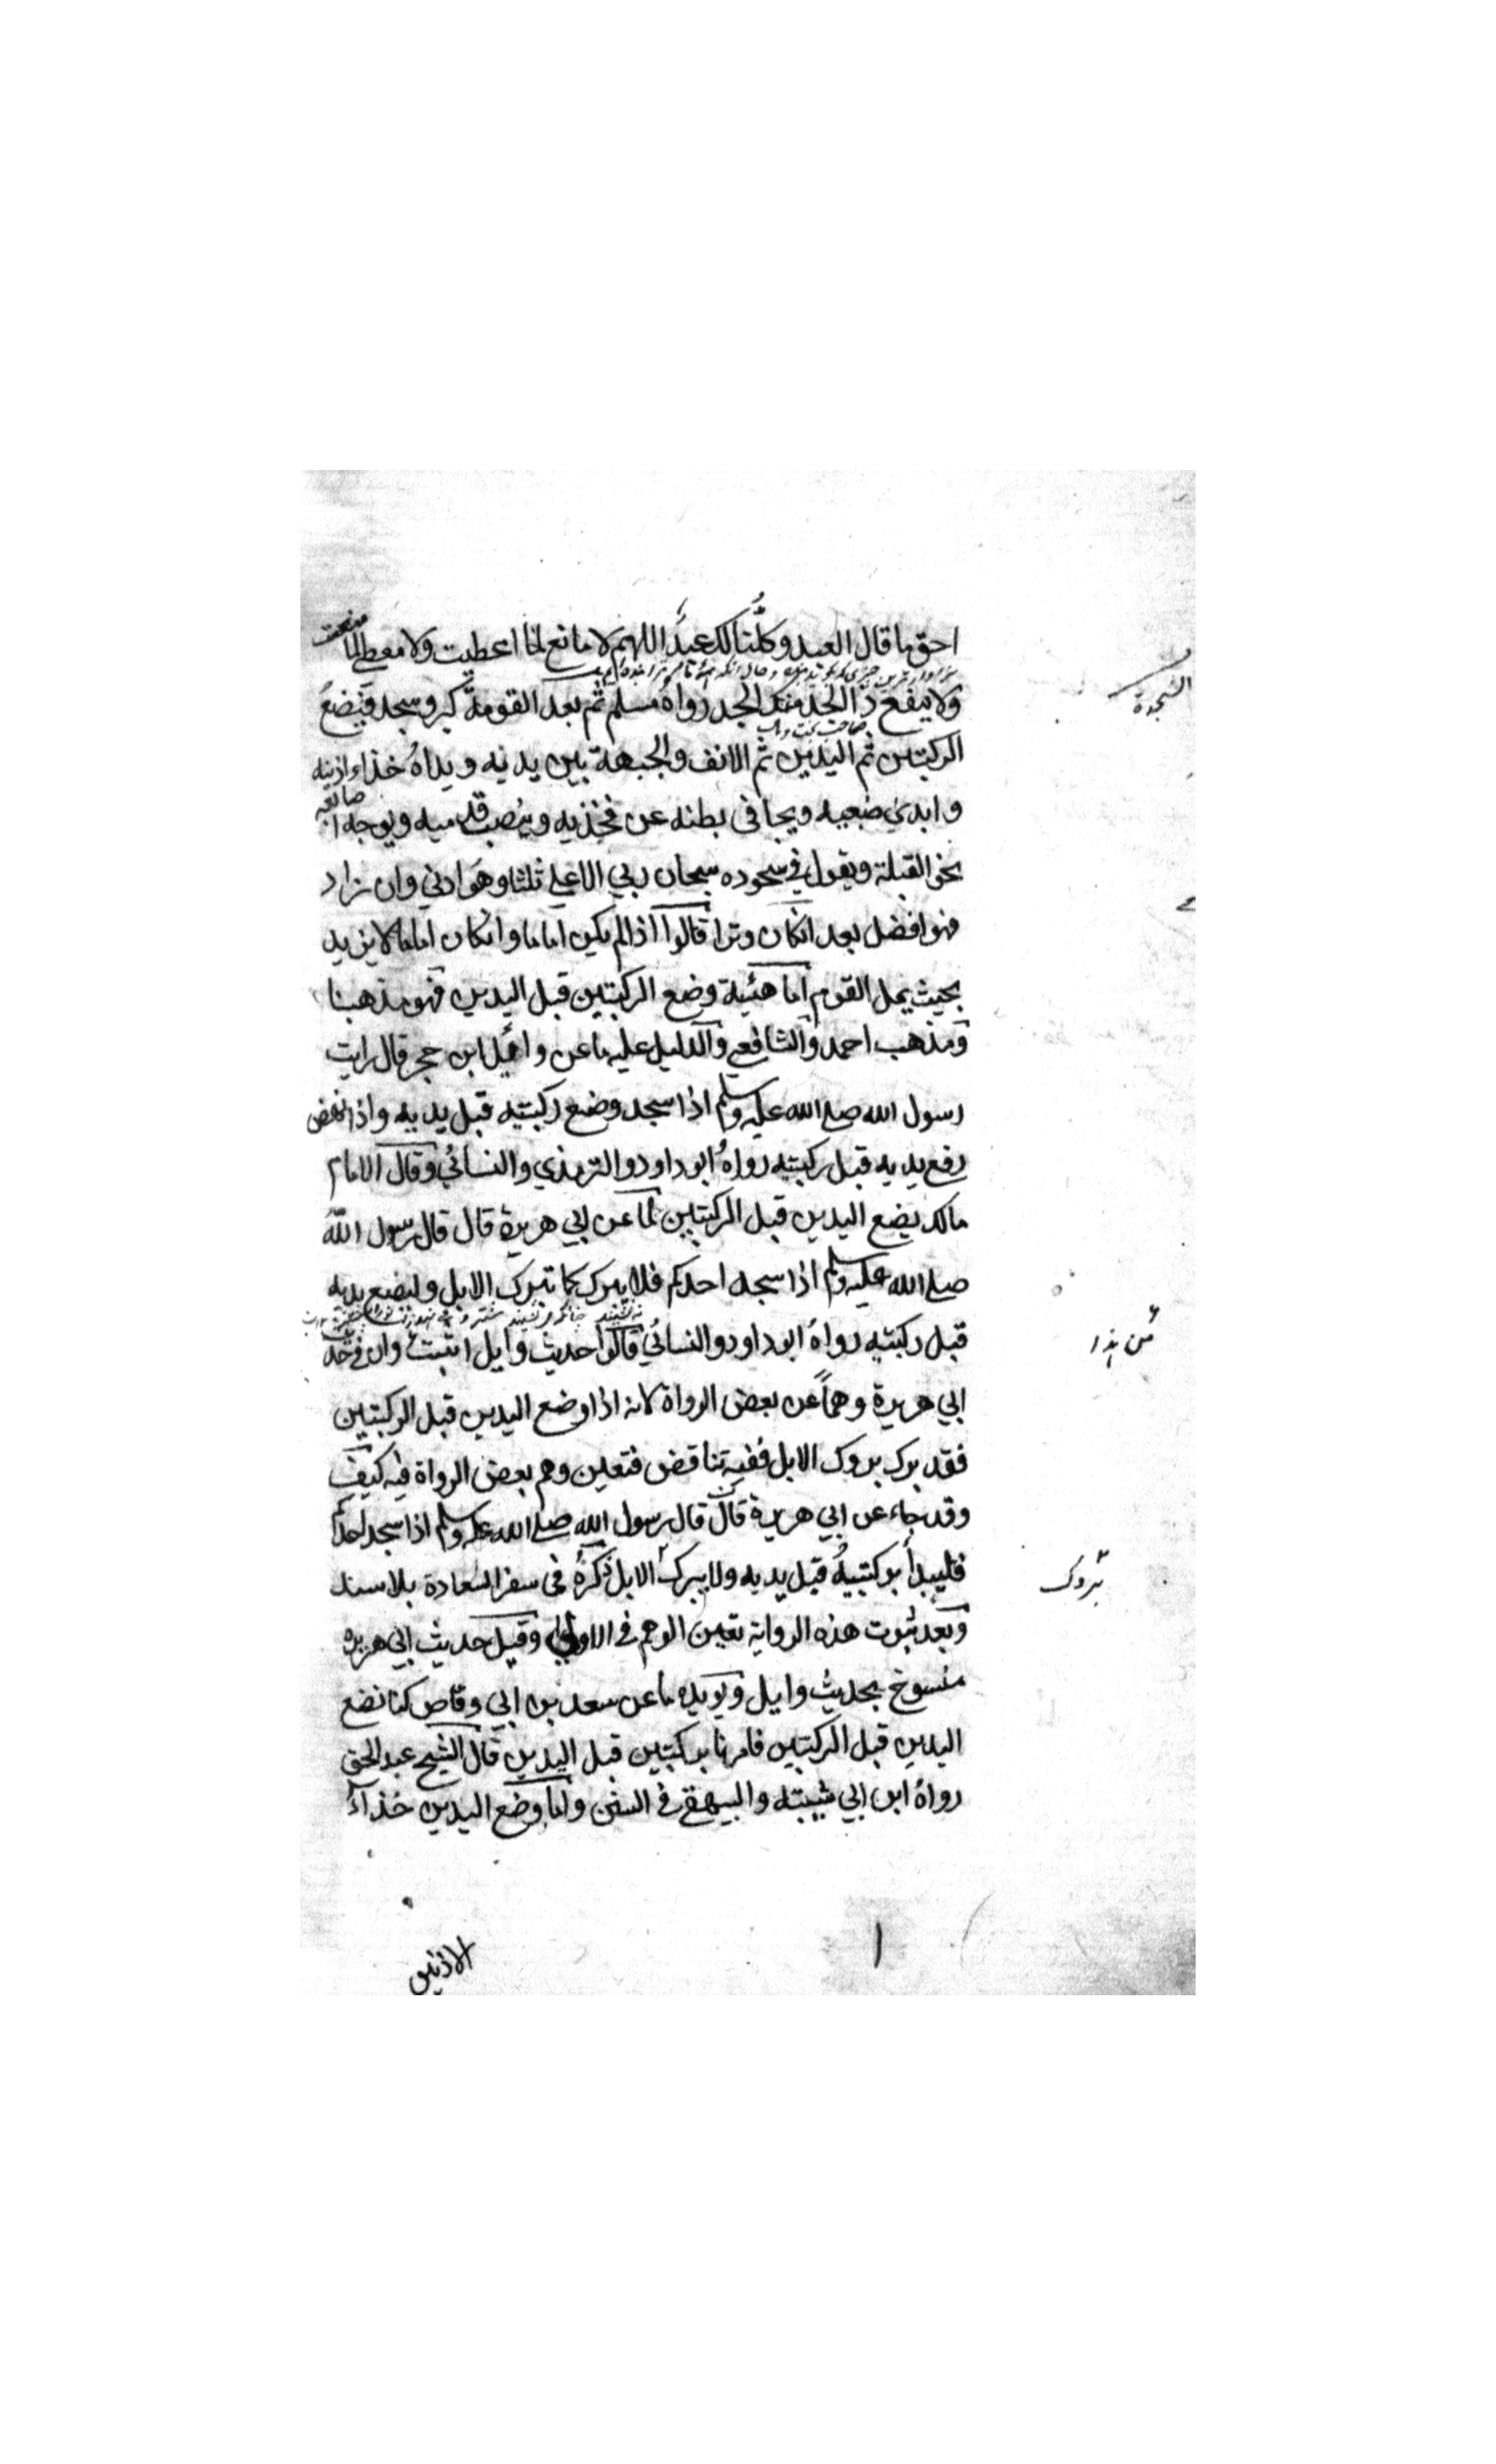 احق ما قال العبد وكلّنا لك عبدٌ اللهم لا مانع لما اعطيت ولا معطي لما منعت
ولا ينفع ذا الجد منك الجد رواه مسلم ثم بعد القومة كبر وسجد فيضع
الركبتين ثم اليدين ثم الانف والجبهة بين يديه ويداه خذاء اذنيه
وابدي ضبعيه ويجافى بطنه عن فخذيه وينصب قدميه ويوجه اصابعه
نحو القبلة ويقول في سجوده سبحان ربي الاعلي ثلثا وهو ادني وان زاد
فهو افضل بعد انكان وترا قالوا اذا لم يكن اماما وانكان اماما لا يزيد
بحيث يمل القوم اما هيئة وضع الركبتين قبل اليدين فهو مذهبنا
ومذهب احمد والشافعي والدليل عليه ما عن وائل ابن حجر قال رايت
رسول الله صلى الله عليه وسلم اذا سجد وضع ركبتيه قبل يديه واذا نهض
رفع يديه قبل ركبتيه رواه ابو داود والترمذي والنسائي وقال الامام
مالك يضع اليدين قبل الركبتين لما عن ابي هريرة قال قال رسول الله
صلى الله عليه وسلم اذا سجد احدكم فلا يبرك كما تبرك الابل وليضع يديه
قبل ركبتيه رواه ابو داود والنسائي قالوا حديث وايل اثبت وان في حديث
ابي هريرة وهماً عن بعض الرواة لانه اذا وضع اليدين قبل الركبتين
فقد برك بروك الابل ففيه تناقض فتعين وهم بعض الرواة فيه كيف
وقد جاء عن ابي هريرة قال قال رسول الله صلى الله عليه وسلم اذا سجد احدكم
فليبدأ بركبتيه قبل يديه ولا يبرك الابل ذكره فى سفر السعادة بلا سند
وبعد ثبوت هذه الرواية تعين الوهم في الاولي وقيل حديث ابي هريرة
منسوخ بحديث وايل ويويده ما عن سعد بن ابي وقاص كنا نضع
اليدين قبل الركبتين فامرنا بركبتين قبل اليدين قال الشيخ عبد الحق
رواه ابن ابي شيبته والبيهقي في السنن واما وضع اليدين خذاء
الاذنين
السجدة
بروك